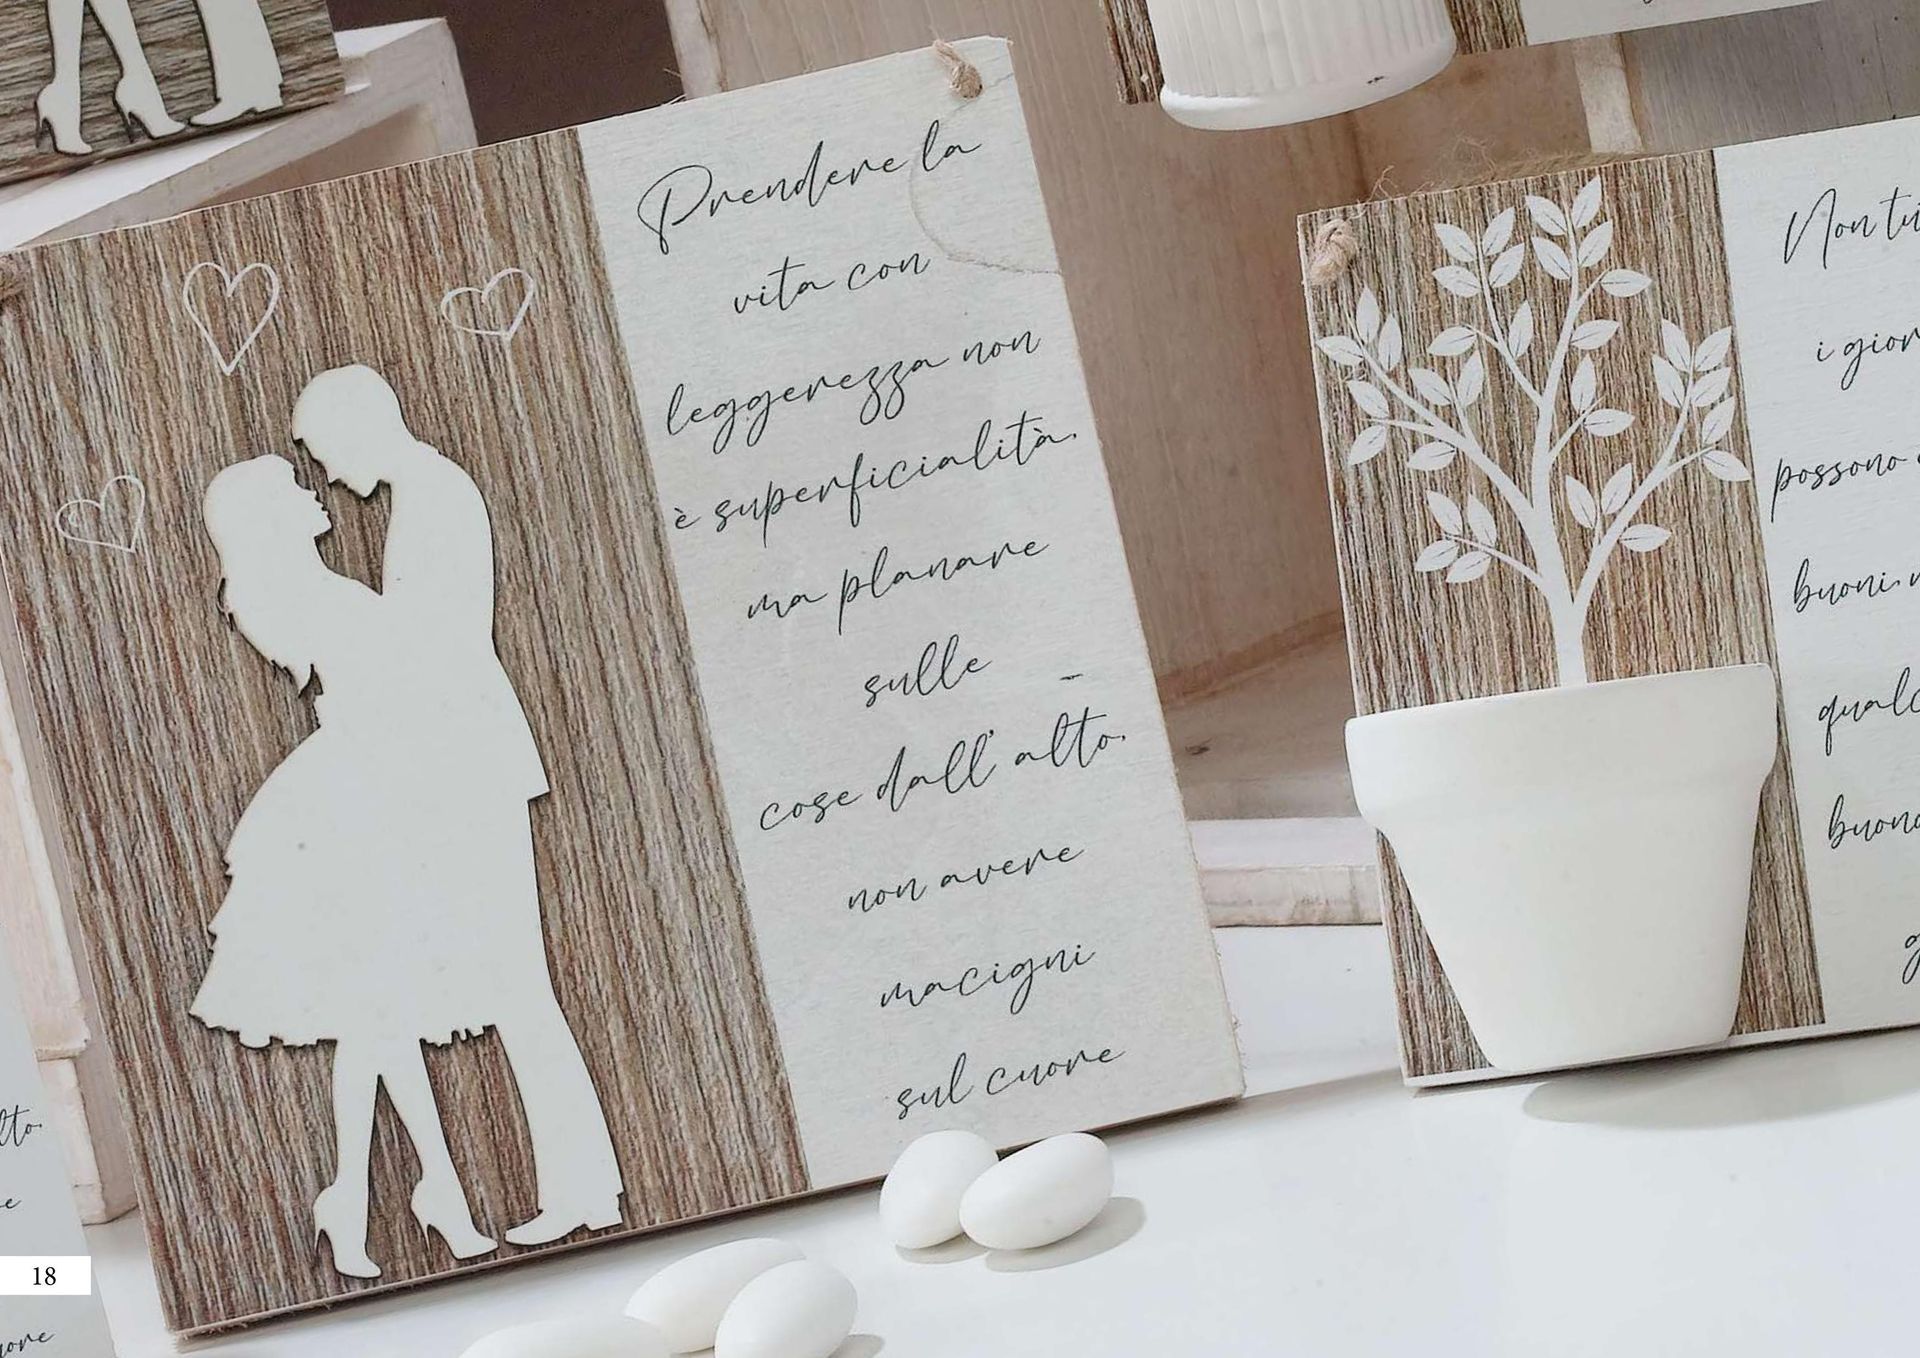 Prendere la
vita con
leggerezza non
è superficialità.
ma planare
sulle
cose dall'alto.
non avere
macigni
sul cuore
Non
i
possono
buoni.
18